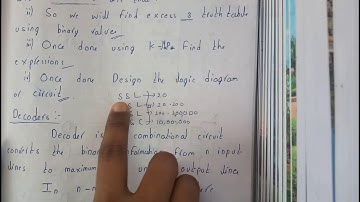 ii) So we will find excess 3 truth table
using binary values
iii) Once done using K-Map find the
expressions
iv) Once done Design the logic diagram
or circuit.
SSL → 20
SL → 20-200
SL → 200-
C 10,00,000
Decoders:-
Decoder is combinational circuit
converts the bina information from n input
lines to maximum un output line
In n-